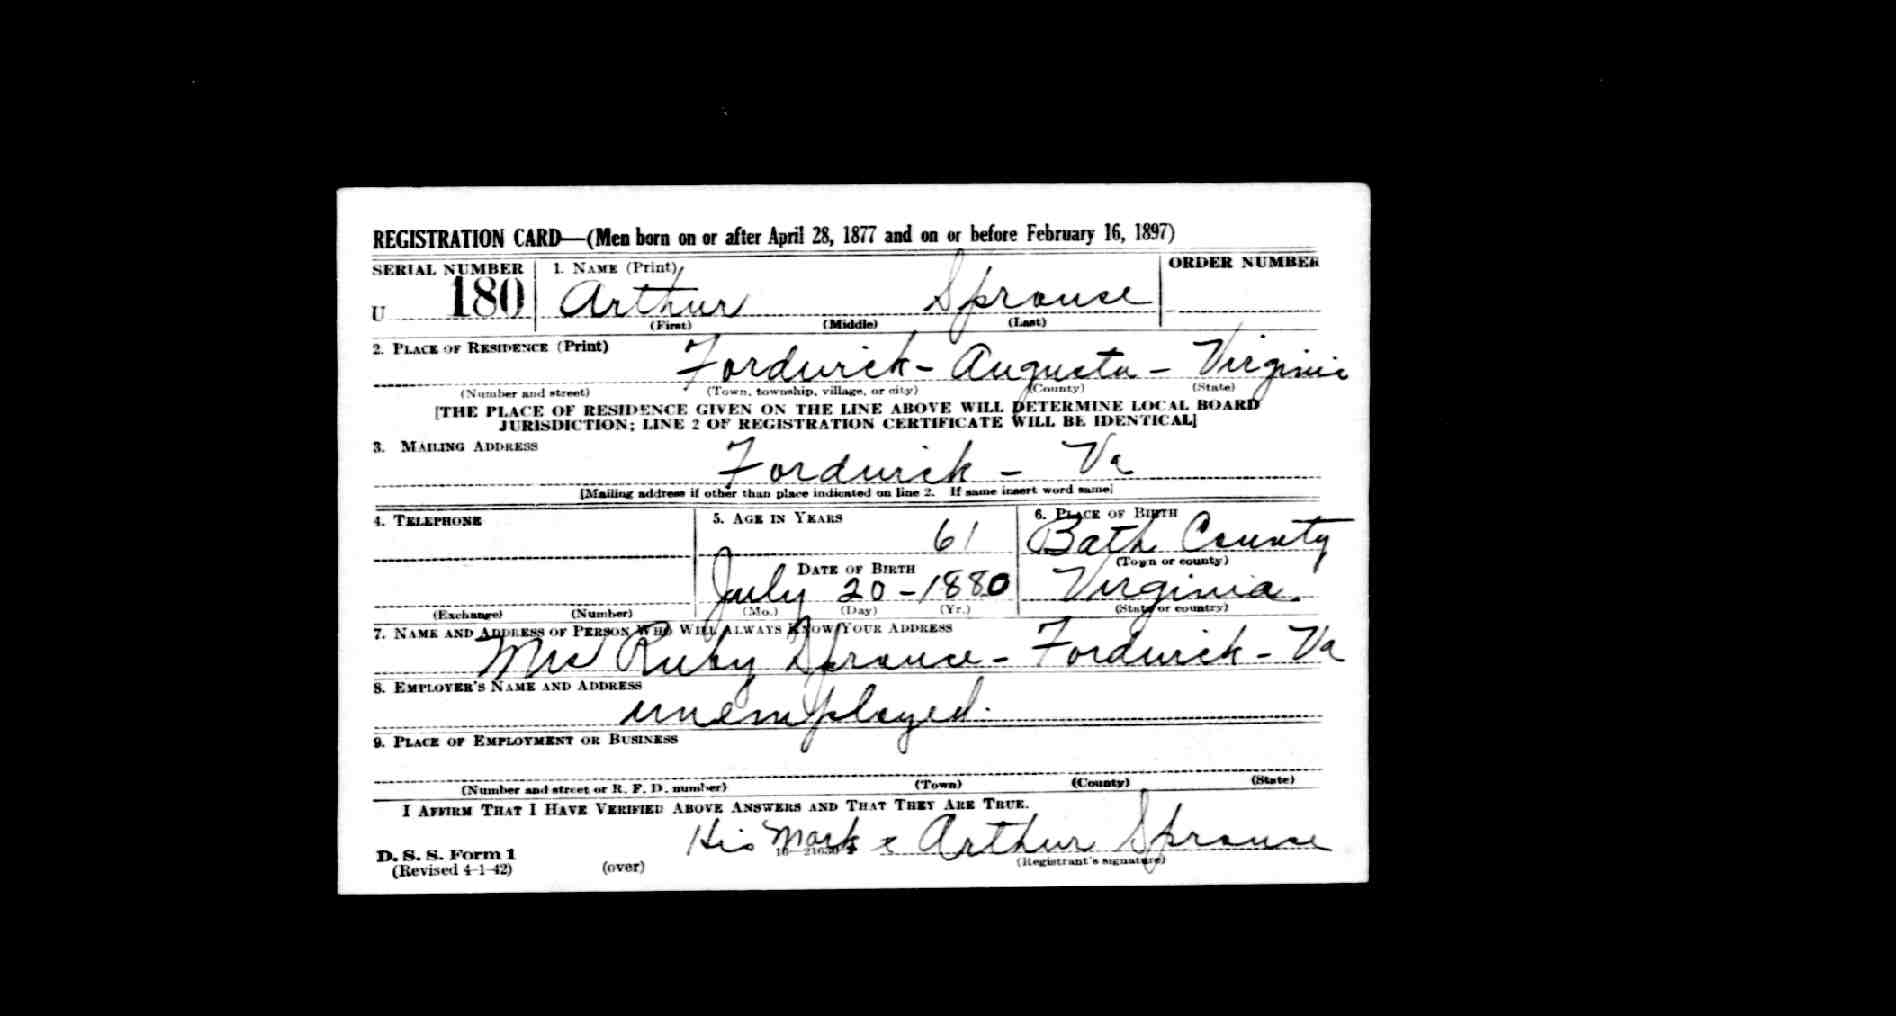 REGISTRATION CARD—(Men born on or after April 28, 1877 and on or before February 16, 1897)
SERIAL NUMBER 1. NAME (Print) ORDER NUMBER
U 180 Arthur Sprouse
(First) (Middle) (Last)
2. PLACE OF RESIDENCE (Print)
Fordwick - Augusta - Virginia
(Number and street) (Town, township, village, or city) (County) (State)
[THE PLACE OF RESIDENCE GIVEN ON THE LINE ABOVE WILL DETERMINE LOCAL BOARD
JURISDICTION; LINE 2 OF REGISTRATION CERTIFICATE WILL BE IDENTICAL]
3. MAILING ADDRESS
Fordwick - Va
[Mailing address if other than place indicated on line 2. If same insert word same]
4. TELEPHONE 5. AGE IN YEARS 6. PLACE OF BIRTH
61 Bath County
DATE OF BIRTH (Town or county)
July 20-1880 Virginia.
(Exchange) (Number) (Mo.) (Day) (Yr.) (State or country)
7. NAME AND ADDRESS OF PERSON WHO WILL ALWAYS KNOW YOUR ADDRESS
Mrs Ruby Sprouse - Fordwick - Va
8. EMPLOYER'S NAME AND ADDRESS
unemployed.
9. PLACE OF EMPLOYMENT OR BUSINESS
(Number and street or R. F. D. number) (Town) (County) (State)
I AFFIRM THAT I HAVE VERIFIED ABOVE ANSWERS AND THAT THEY ARE TRUE.
His Mark x Arthur Sprouse
D. S. S. Form 1 (Registrant's signature)
(Revised 4-1-42) (over)